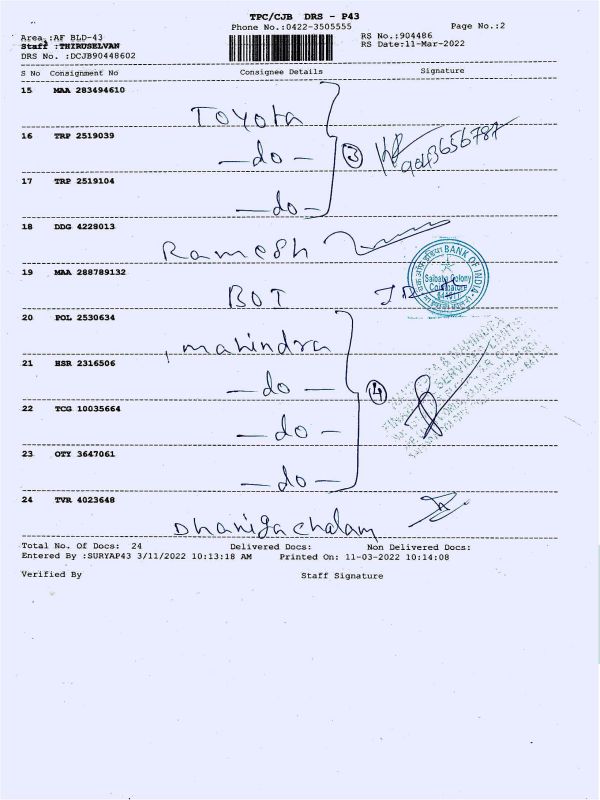 TPC/CJB DRS - P43
Phone No.:0422-3505555
Page No.:2
Area :AF BLD-43
RS No.:904486
Staff :THIRUSELVAN
RS Date:11-Mar-2022
DRS No. :DCJB90448602
S No Consignment No Consignee Details Signature
15 MAA 283494610
Toyota
16 TRP 2519039
—do—
3
17 TRP 2519104
—do—
18 DDG 4228013
Ramesh
BANK OF INDIA
Saibaba Colony
Coimbatore
19 MAA 288789132
BOI
20 POL 2530634
mahindra
21 HSR 2316506
—do—
4
22 TCG 10035664
—do—
23 OTY 3647061
—do—
24 TVR 4023648
Total No. Of Docs: 24 Delivered Docs: Non Delivered Docs:
Entered By :SURYAP43 3/11/2022 10:13:18 AM Printed On: 11-03-2022 10:14:08
Verified By Staff Signature